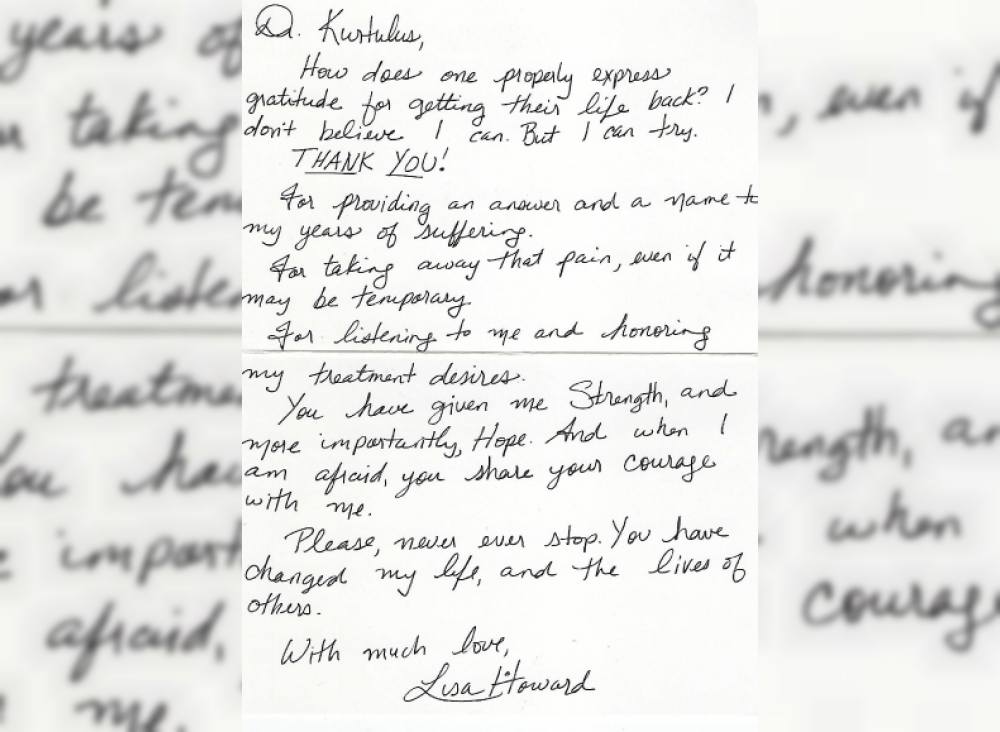 Dr. Kurtulus,
How does one properly express
gratitude for getting their life back? I
don't believe I can. But I can try.
THANK YOU!
For providing an answer and a name to
my years of suffering.
For taking away that pain, even if it
may be temporary.
For listening to me and honoring
my treatment desires.
You have given me Strength, and
more importantly, Hope. And when I
am afraid, you share your courage
with me.
Please, never ever stop. You have
changed my life, and the lives of
others.
With much love,
Lisa Howard